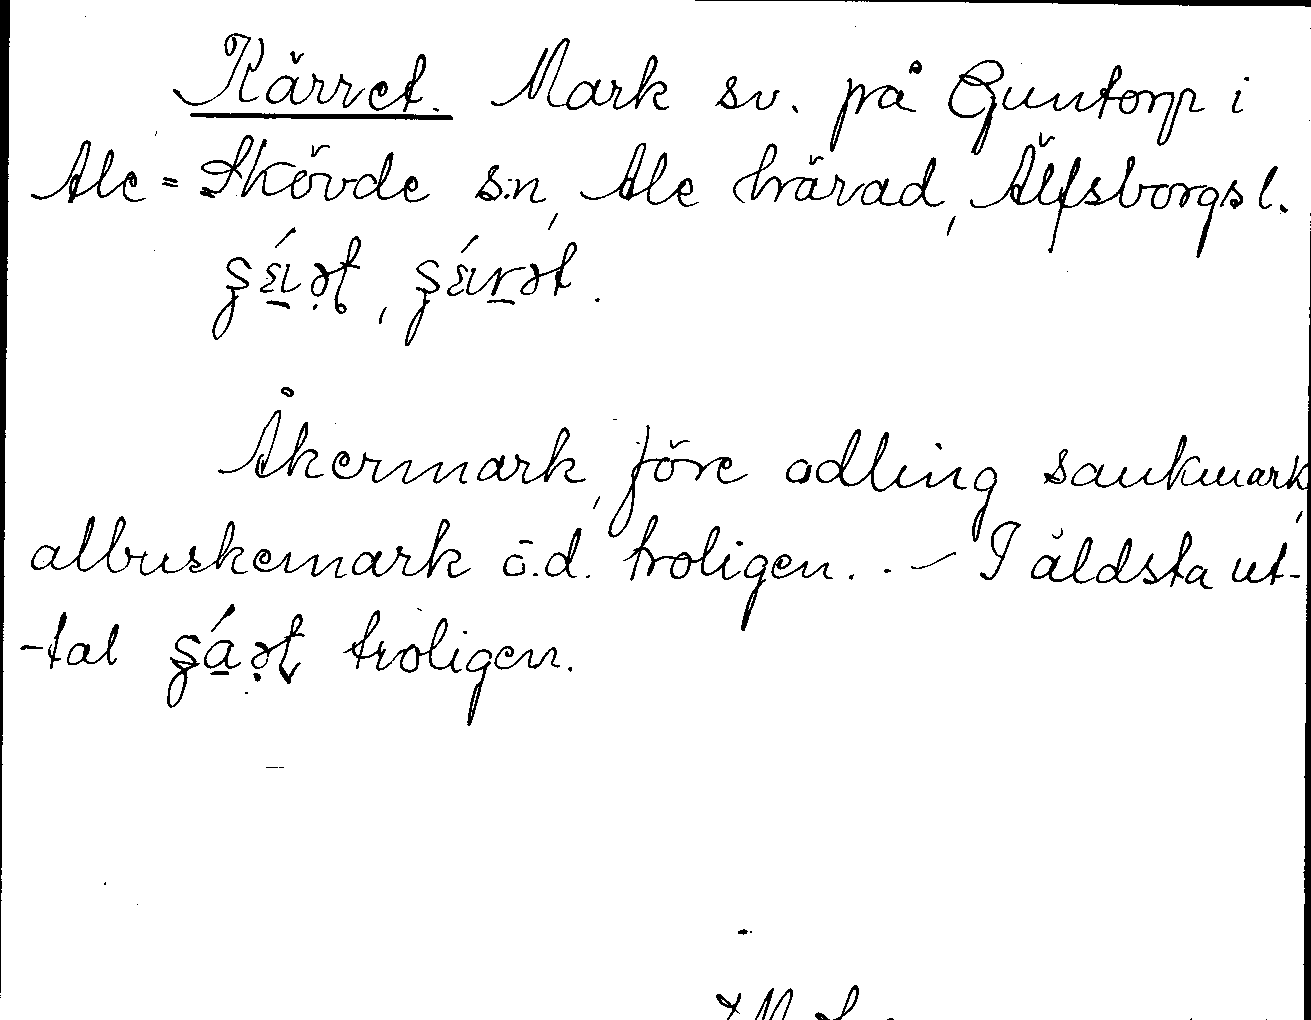 Kärret. Mark sv. på Guntorp i
Ale-Skövde s:n, Ale härad, Älfsborgs l.
Åkermark, före odling sankmark,
albuskemark o.d. troligen. . – I äldsta ut-
-tal troligen.